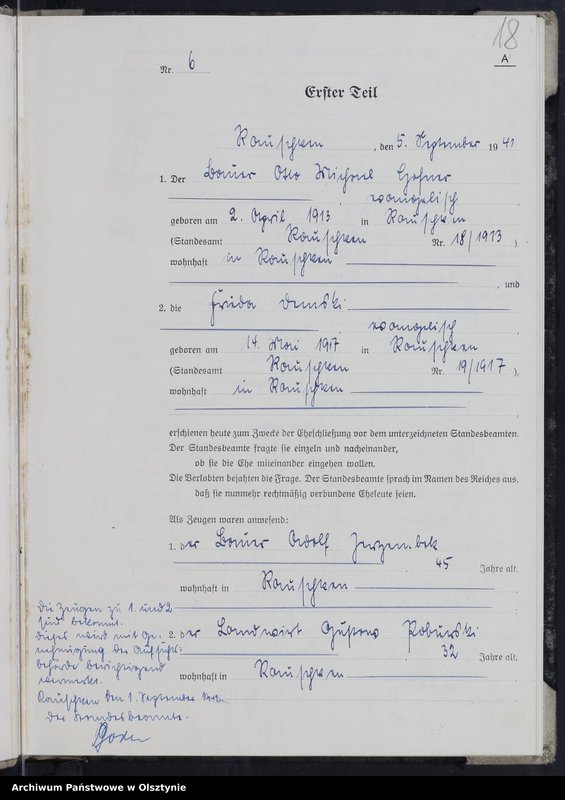 18
A
Nr. 6
Erster Teil
Rauschken, den 5. September 1941
1. Der Bauer Otto Michael
, evangelisch,
geboren am 2. April 1913 in Rauschken
(Standesamt Rauschken Nr. 18/1913 ).
wohnhaft in Rauschken
, und
2. die Frieda Demski
, evangelisch,
geboren am 14. Mai 1917 in Rauschken
(Standesamt Rauschken Nr. 19/1917 ),
wohnhaft in Rauschken
erschienen heute zum Zwecke der Eheschließung vor dem unterzeichneten Standesbeamten.
Der Standesbeamte fragte sie einzeln und nacheinander,
ob sie die Ehe miteinander eingehen wollen.
Die Verlobten bejahten die Frage. Der Standesbeamte sprach im Namen des Reiches aus,
daß sie nunmehr rechtmäßig verbundene Eheleute seien.
Als Zeugen waren anwesend:
1. der Bauer Adolf
45 Jahre alt,
wohnhaft in Rauschken
2. der Landwirt Gustav Poburski
32 Jahre alt,
wohnhaft in Rauschken
Die Zeugen zu 1. und 2
sind bekannt.
Dieses wird mit Ge-
nehmigung der Aufsichts-
behörde berichtigend
vermerkt.
Rauschken den 1. September 1942.
Der Standesbeamte.
Archiwum Państwowe w Olsztynie